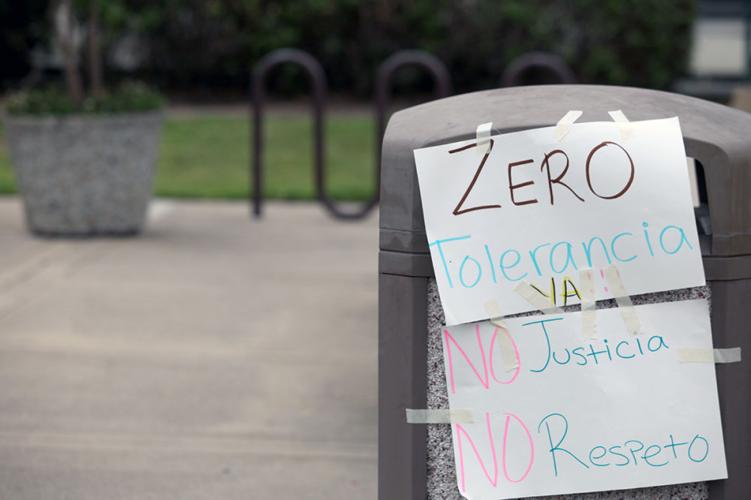 ZERO
Tolerancia
YA!!
NO Justicia
NO Respeto